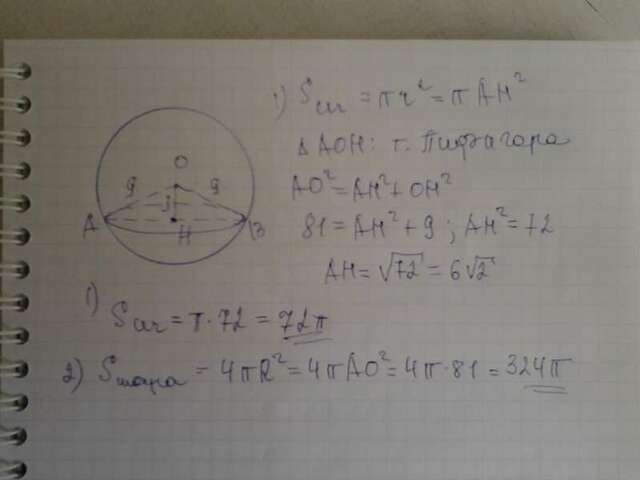 1) Sсеч = πr² = πAH²
∆ AOH: т. Пифагора
AO² = AH² + OH²
81 = AH² + 9 ; AH² = 72
AH = √72 = 6√2
O
9 9
3
A H B
1) Sсеч = π·72 = 72π
2) Sшара = 4πR² = 4πAO² = 4π·81 = 324π